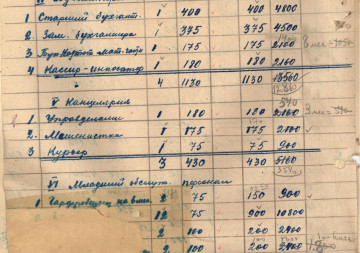 1 Старший бухгалт. 1 400 400 4800
2. Зам. бухгалтера 1 375 375 4500
3 Бух. Картот. Мат. 1 175 175 2160
4 Кассир-инкассатор 1 180 180 2160
4 1130 1130 13560
V Канцелярия 540
1 Управделами 1 180 180 2160
2. Машинистка 1 175 175 2100
3 Курьер 1 75 75 900
3 430 430 5160
VI Младший обслуж. персонал
1 Гардеробщиц на 2 75 150 900
12 75 900 10800
2 100 200 2400
2 100 200 2400